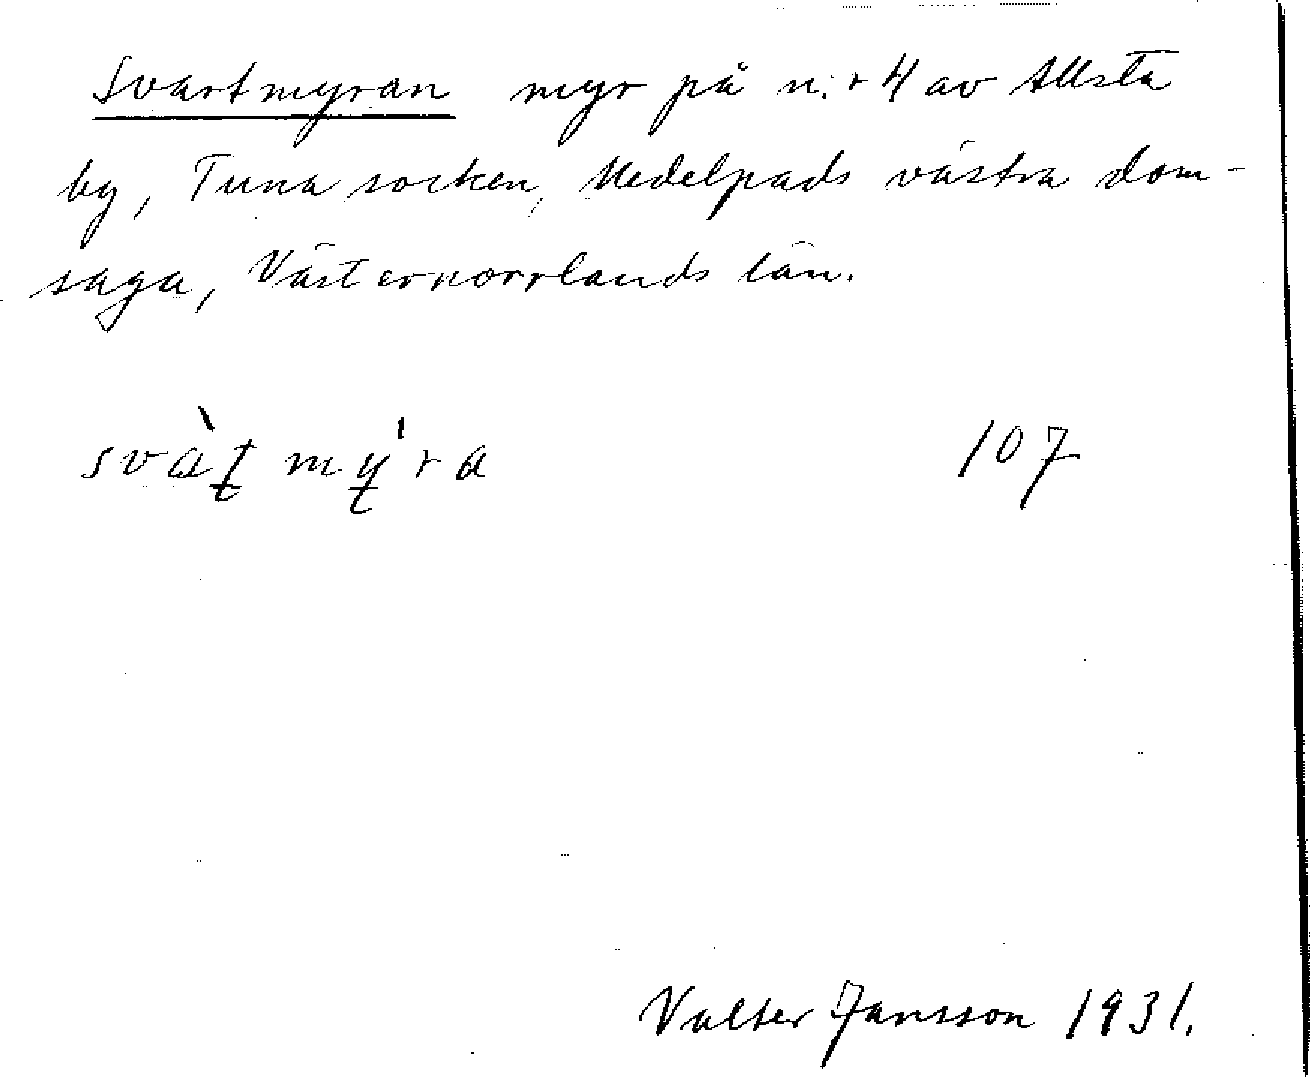 Svartmyran myr på n:r 4 av Allsta
by, Tuna socken, Medelpads västra dom-
saga, Västernorrlands län.
svàt my̍ra 107
Valter Jansson 1931.